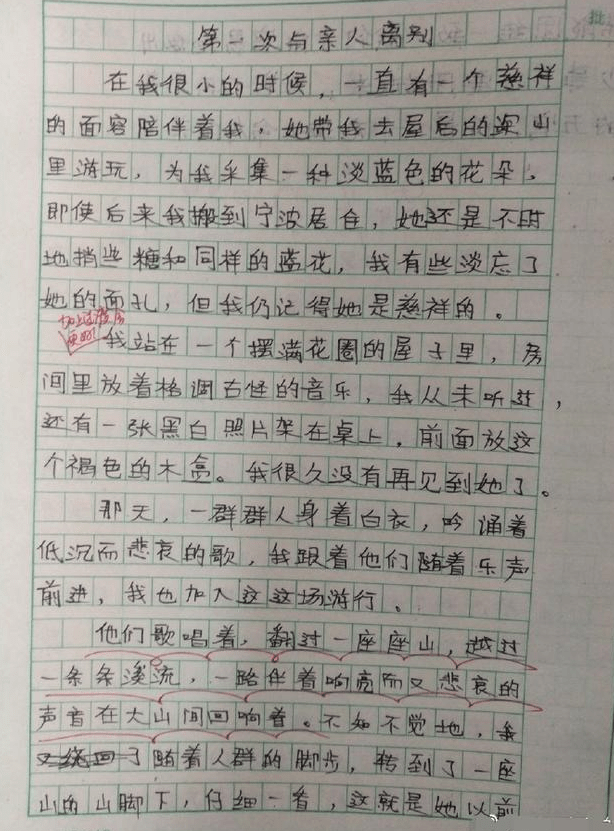 第一次与亲人离别
在我很小的时候，一直有一个慈祥
的面容陪伴着我，她带我去屋后的深山
里游玩，为我采集一种淡蓝色的花朵，
即使后来我搬到宁波居住，她还是不时
地捎些糖和同样的蓝花，我有些淡忘了
她的面孔，但我仍记得她是慈祥的。
加上过渡句
更好！
我站在一个摆满花圈的屋子里，房
间里放着格调古怪的音乐，我从未听过，
还有一张黑白照片架在桌上，前面放这
个褐色的木盒。我很久没有再见到她了。
那天，一群群人身着白衣，吟诵着
低沉而悲哀的歌，我跟着他们随着乐声
前进，我也加入这这场游行。
他们歌唱着，翻过一座座山，越过
一条条溪流，一路伴着响亮而又悲哀的
声音在大山间回响着。不知不觉地，我
了随着人群的脚步，转到了一座
山的山脚下，仔细一看，这就是她以前